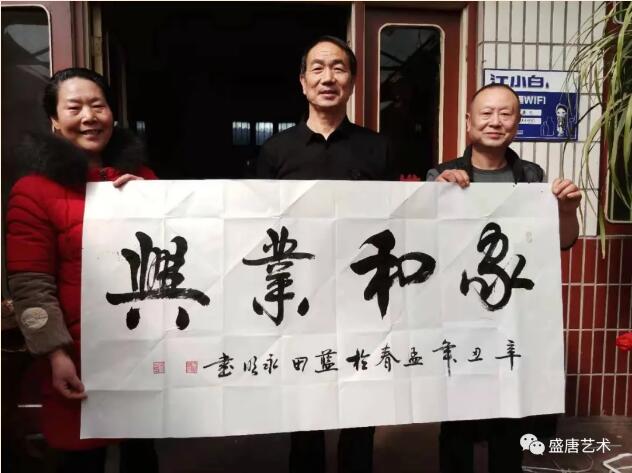 家和業興
辛丑年孟春於藍田永明書
江小白,
WIFI
盛唐艺术